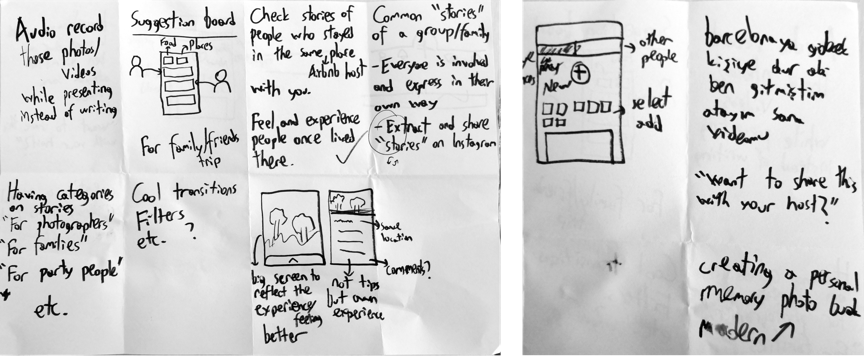 Audio record
those photos/
videos
while presenting
instead of writing
Suggestion board
Food
Places
For family/friends
trip
Check stories of
people who stayed
in the same place
Airbnb host
with you.
Feel and experience
people once lived
there.
Common "stories"
of a group/family
- Everyone is involved
and express in their
own way
- Extract and share
"stories" on Instagram
Having categories
on stories
"For photographers"
"For families"
"For party people"
etc.
Cool transitions
Filters
etc. ?
same
location
comments?
big screen to
reflect the
experience/
feeling
better
not tips
but own
experience
other
people
New
select
add
barcelonaya gidecek
kişiye dur abi
ben gitmiştim
atayım sana
videomu
"want to share this
with your host?"
creating a personal
memory photo book
modern